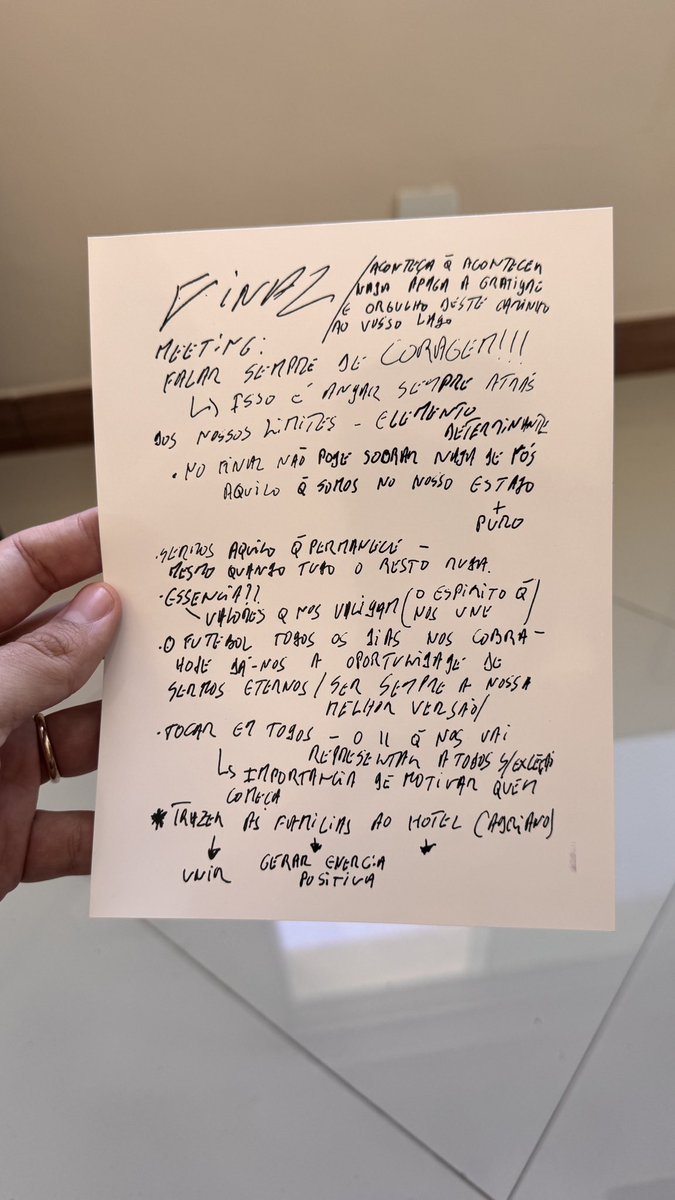 FINAL
/ACONTEÇA Q̃ ACONTECER
NADA APAGA A GRATIDÃO
E ORGULHO DESTE CAMINHO
AO VOSSO LADO
MEETING:
FALAR SEMPRE DE CORAGEM!!!
↳ ISSO É ANDAR SEMPRE ATRÁS
DOS NOSSOS LIMITES - ELEMENTO
DETERMINANTE
• NO FINAL NÃO PODE SOBRAR NADA DE NÓS
AQUILO Q̃ SOMOS NO NOSSO ESTADO
+
PURO
• SERMOS AQUILO Q̃ PERMANECE -
MESMO QUANDO TUDO O RESTO MUDA.
• ESSENCIA!!
VALORES Q NOS VALIDAM (O ESPIRITO Q̃
NOS UNE)
• O FUTEBOL TODOS OS DIAS NOS COBRA -
HOJE DÁ-NOS A OPORTUNIDADE DE
SERMOS ETERNOS / SER SEMPRE A NOSSA
MELHOR VERSÃO/
• TOCAR EM TODOS - O 11 Q̃ NOS VAI
REPRESENTAR A TODOS S/EXCEÇÃO
↳ IMPORTANCIA DE MOTIVAR QUEM
COMEÇA
* TRAZER AS FAMILIAS AO HOTEL (ADRIANO)
↓ ↓ ↓
UNIR GERAR ENERGIA
POSITIVA